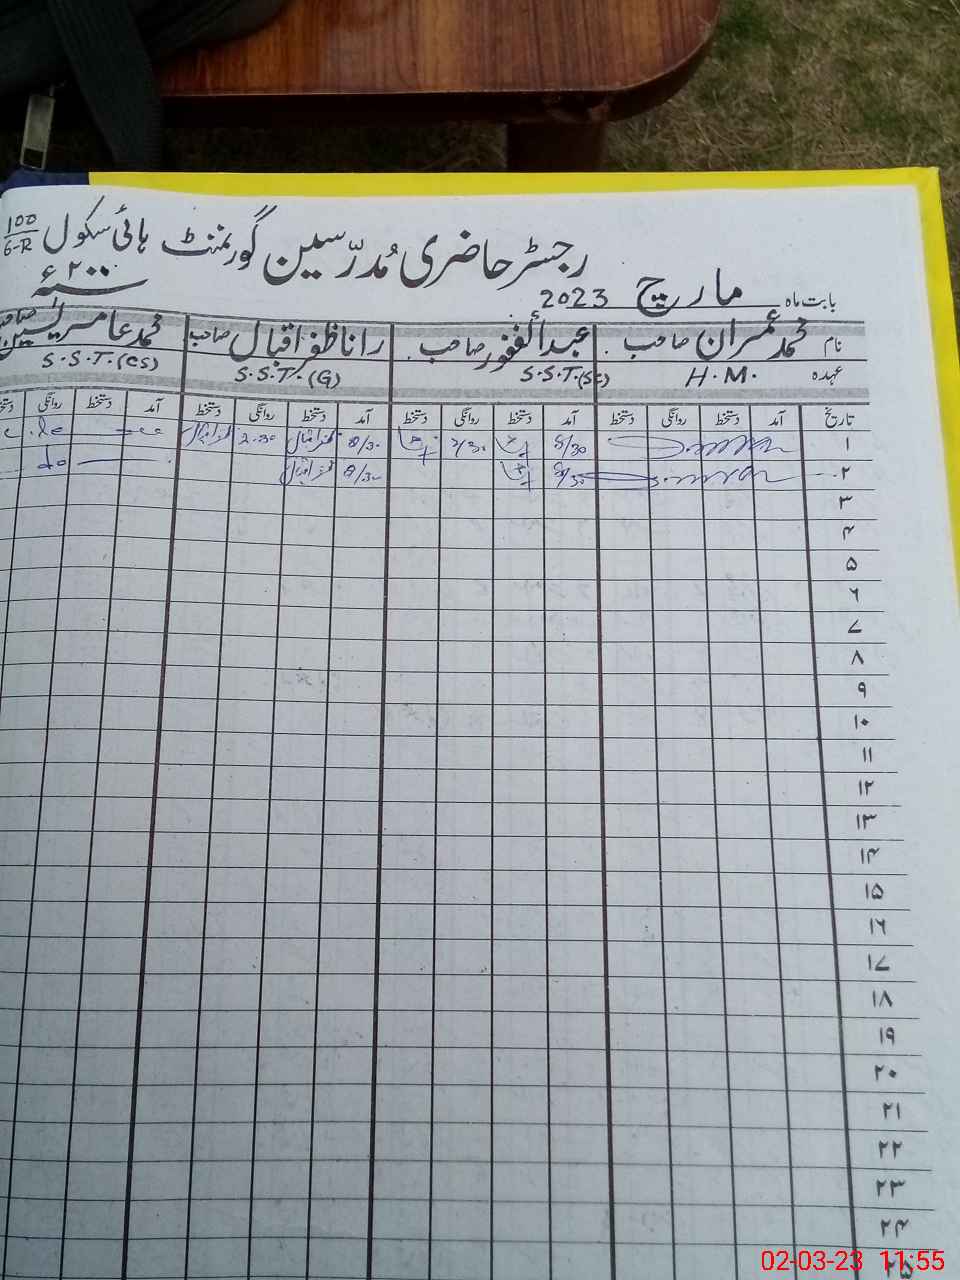 رجسٹر حاضری مُدرّسین گورنمنٹ ہائی سکول 100/6-R
بابت ماہ مارچ 2023 ۲۰۰ء
نام محمد عمران صاحب عبدالغفور صاحب رانا ظفر اقبال صاحب محمد عامر یٰسین صاحب
عہدہ H.M. S.S.T.(Sc) S.S.T.(G) S.S.T.(CS)
تاریخ آمد دستخط روانگی دستخط آمد دستخط روانگی دستخط آمد دستخط روانگی دستخط آمد دستخط روانگی دستخط
۱ 8/30 2/30 8/30 ظفر اقبال 2.30 ظفر اقبال
۲ 8/30 8/30 ظفر اقبال
۳
۴
۵
۶
۷
۸
۹
۱۰
۱۱
۱۲
۱۳
۱۴
۱۵
۱۶
۱۷
۱۸
۱۹
۲۰
۲۱
۲۲
۲۳
۲۴
۲۵
02-03-23 11:55